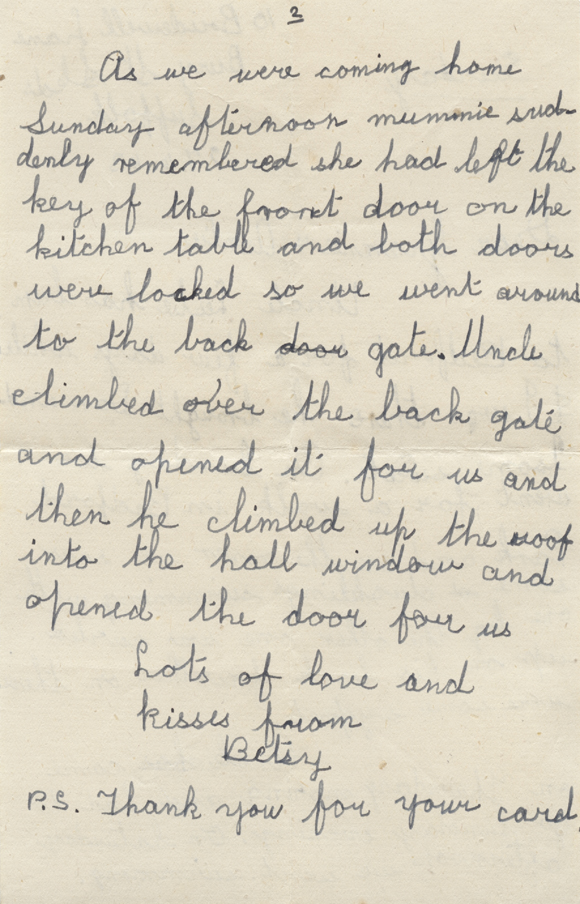 2
As we were coming home
Sunday afternoon mummie sud-
denly remembered she had left the
key of the front door on the
kitchen table and both doors
were locked so we went around
to the back door gate. Uncle
climbed over the back gate
and opened it for us and
then he climbed up the roof
into the hall window and
opened the door for us
Lots of love and
kisses from
Betsy
P.S. Thank you for your card.